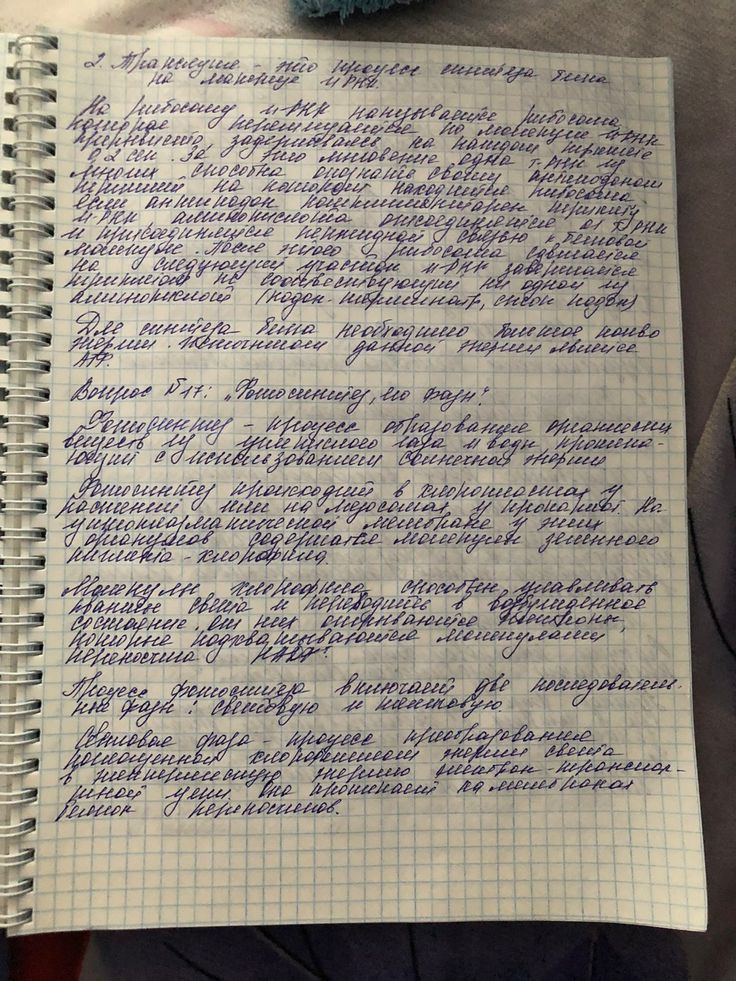 2. Трансляция - это процесс синтеза белка
на матрице и-РНК.
На рибосому и-РНК нанизывается рибосома,
которая перемещается по молекуле и-РНК
прерывисто, задерживаясь на каждом триплете
0,2 сек. За это мгновение одна т-РНК из
многих способна опознать своим антикодоном
триплет на котором находится рибосома
если антикодон комплиментарен триплету
и-РНК аминокислота отсоединяется от т-РНК
и присоединяется пептидной связью к белковой
молекуле. После этого рибосома сдвигается
на следующий участок и-РНК завершается
триплетом не соответствующим ни одной из
аминокислот (кодон-терминатор, стоп кодон)
Для синтеза белка необходимо большое кол-во
энергии. Источником данной энергии является
АТФ.
Вопрос №17: „Фотосинтез, его фазы".
Фотосинтез - процесс образования органических
веществ из углекислого газа и воды протека-
ющий с использованием солнечной энергии
Фотосинтез происходит в хлоропластах у
растений или на мезосомах у прокариот. На
цитоплазматической мембране у этих
организмов содержатся молекулы зеленого
пигмента - хлорофилла.
Молекулы хлорофилла способны улавливать
кванты света и переводить в возбужденное
состояние, от них отрываются электроны,
которые подхватываются молекулами
переносчика НАДФ⁺.
Процесс фотосинтеза включает две последователь-
ные фазы: световую и темновую
Световая фаза - процесс преобразования
поглощенной хлорофиллом энергии света
в электрическую энергию электрон-транспор-
тной цепи. Она протекает на мембранах
белков переносчиков.